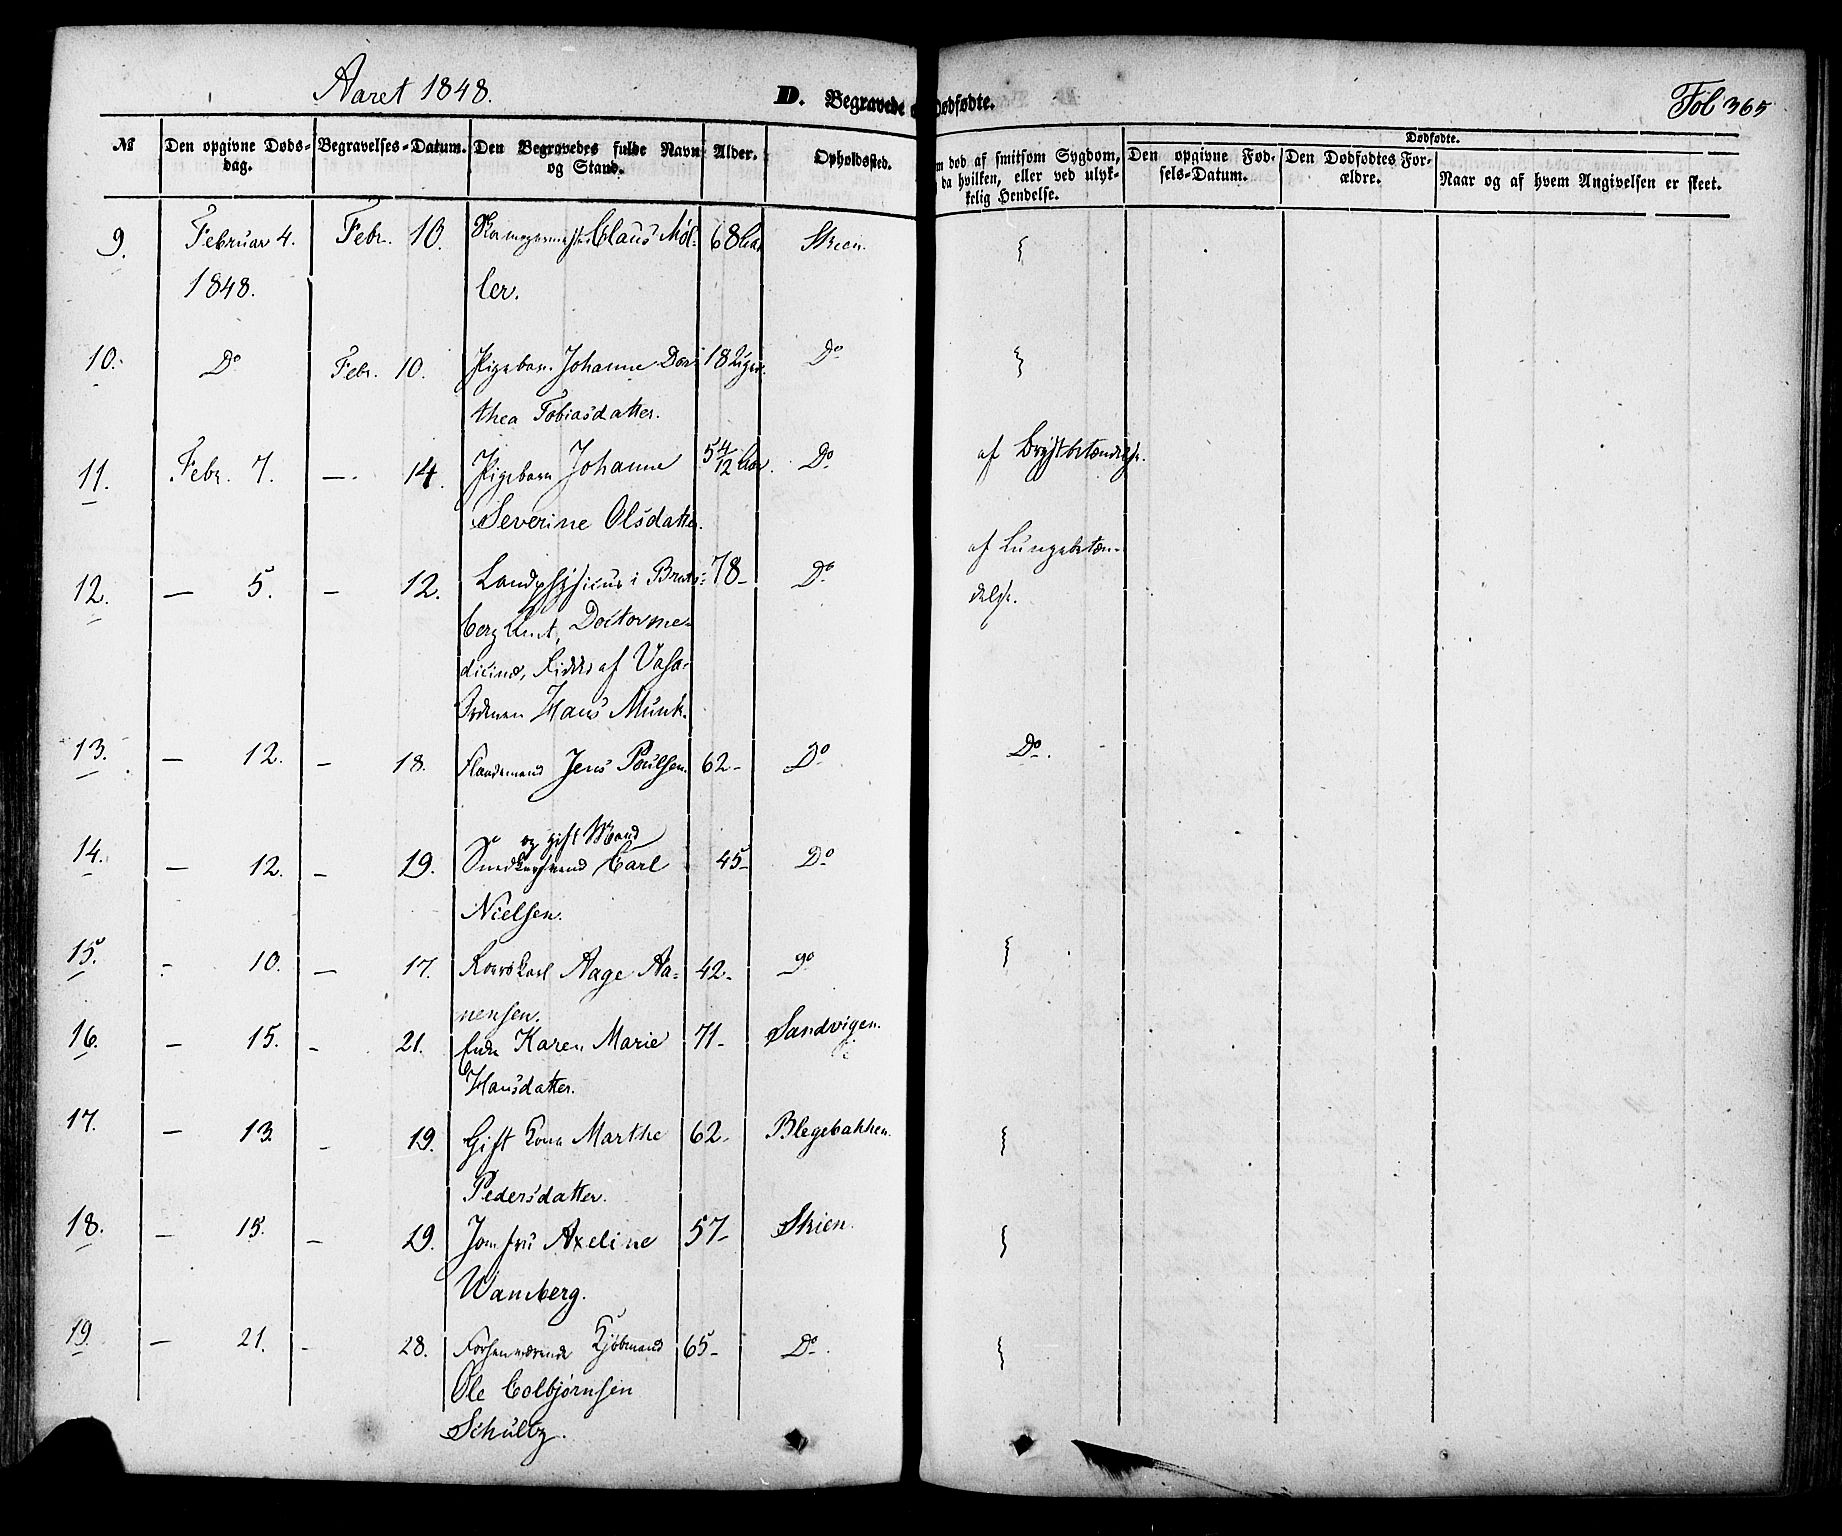 Aaret 1848. D. Begravede o Dødfødte. Fol 365
№ Den opgivne Døds- Begravelses-Datum. Den Begravedes fulde Navn Alder. Opholdssted. m død af smitsom Sygdom, Den opgivne Fød- Den Dødfødtes For- Dødfødte.
dag. og Stand. da hvilken, eller ved ulyk- sels-Datum. ældre. Naar og af hvem Angivelsen er skeet.
kelig Hendelse.
9. Februar 4. Febr. 10. Claus Møl- 68 Aar Skien.
1848. ler.
10. Do Febr. 10. Pigebarn Johanne Dor- 18 Uger. Do
thea Tobiasdatter.
11. Febr. 7. — 14. Pigebarn Johanne 5 4/12 Aar. Do af Brystbetændelse.
Severine Olsdatter.
af Lungebetæn-
12. — 5. — 12. Landphysicus i Brats- 78 – Do delse.
berg Amt, Doctor me-
dicinæ, Ridder af Vasa-
Ordenen Hans Munk.
13. — 12. — 18. Jens Poulsen. 62 – Do Do.
og gift Mand
14. — 12. — 19. Smedsvend Carl 45 – Do
Nielsen.
15. – 10. — 17. Aage Aa- 42 – do
nensen.
16. — 15. – 21. Enke Karen Marie 71 – Sandvigen.
Hansdatter.
17. — 13. – 19. Gift Kone Marthe 62 – Blegebakken.
Pedersdatter.
18. — 15. — 29. Jomfru Axeline 57 – Skien.
Wamberg.
19. — 21. – 28. Forhenværende Kjøbmand 65 – Do.
Ole Colbjørnsen
Schultz.